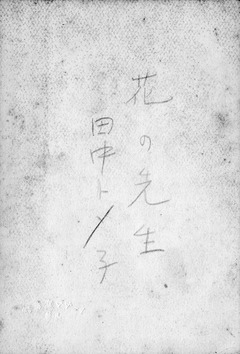 花の先生
田中トメ子